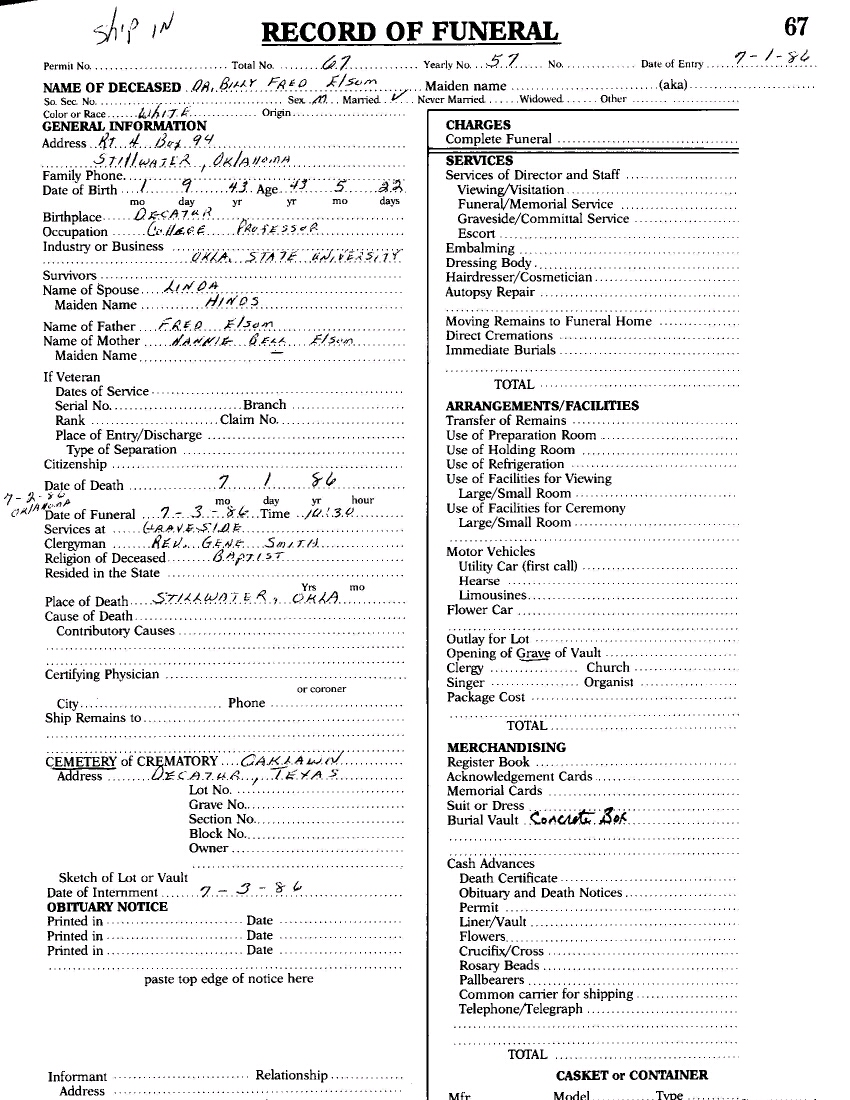 Ship IN
RECORD OF FUNERAL
67
Permit No. Total No. 67 Yearly No. 57 No. Date of Entry 7-1-86
NAME OF DECEASED DR. BILLY FRED Elsom Maiden name (aka)
So. Sec. No. Sex M Married ✓ Never Married Widowed Other
Color or Race WHITE Origin
GENERAL INFORMATION
Address RT 4 Box 94
STILLWATER, OKLAHOMA
Family Phone.
Date of Birth 1 9 43 Age 43 5 22
mo day yr yr mo days
Birthplace DECATUR
Occupation COLLEGE PROFESSOR
Industry or Business
OKLA. STATE UNIVERSITY
Survivors
Name of Spouse LINDA
Maiden Name HINDS
Name of Father FRED Elsom
Name of Mother NANNIE BELL Elsom
Maiden Name —
If Veteran
Dates of Service
Serial No. Branch
Rank Claim No.
Place of Entry/Discharge
Type of Separation
Citizenship
Date of Death 7 1 86
mo day yr hour
7-2-86
OKLAHOMA
Date of Funeral 7-3-86 Time 10:30
Services at GRAVESIDE
Clergyman REV. GENE SMITH
Religion of Deceased BAPTIST
Resided in the State
Yrs mo
Place of Death STILLWATER, OKLA
Cause of Death
Contributory Causes
Certifying Physician
or coroner
City Phone
Ship Remains to
CEMETERY of CREMATORY OAKLAWN
Address DECATUR, TEXAS
Lot No.
Grave No.
Section No.
Block No.
Owner
Sketch of Lot or Vault
Date of Internment 7-3-86
OBITUARY NOTICE
Printed in Date
Printed in Date
Printed in Date
paste top edge of notice here
Informant Relationship
Address
CHARGES
Complete Funeral
SERVICES
Services of Director and Staff
Viewing/Visitation
Funeral/Memorial Service
Graveside/Committal Service
Escort
Embalming
Dressing Body
Hairdresser/Cosmetician
Autopsy Repair
Moving Remains to Funeral Home
Direct Cremations
Immediate Burials
TOTAL
ARRANGEMENTS/FACILITIES
Transfer of Remains
Use of Preparation Room
Use of Holding Room
Use of Refrigeration
Use of Facilities for Viewing
Large/Small Room
Use of Facilities for Ceremony
Large/Small Room
Motor Vehicles
Utility Car (first call)
Hearse
Limousines
Flower Car
Outlay for Lot
Opening of Grave of Vault
Clergy Church
Singer Organist
Package Cost
TOTAL
MERCHANDISING
Register Book
Acknowledgement Cards
Memorial Cards
Suit or Dress
Burial Vault Concrete Box
Cash Advances
Death Certificate
Obituary and Death Notices
Permit
Liner/Vault
Flowers
Crucifix/Cross
Rosary Beads
Pallbearers
Common carrier for shipping
Telephone/Telegraph
TOTAL
CASKET or CONTAINER
Mfr. Model Type